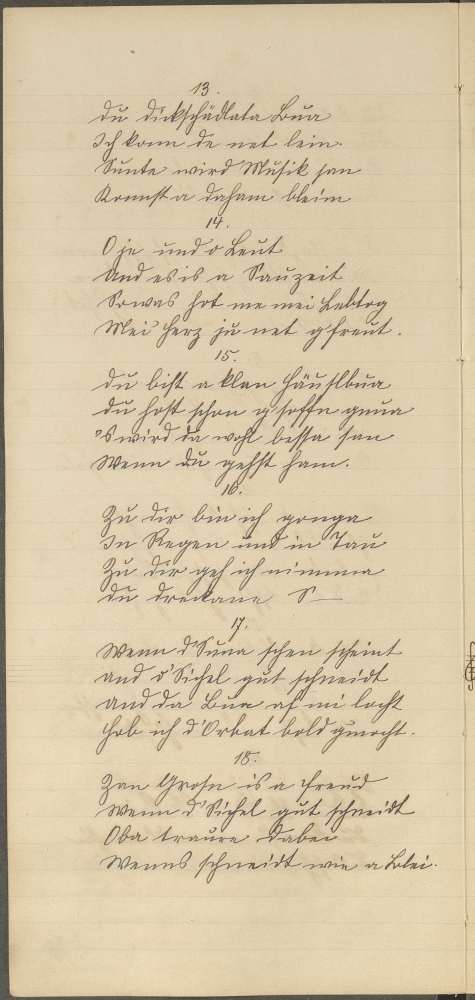 13.
Du dickschädlata Bua
Ich konn da net lein
Sunte wird Musik san
Konnst a daham bleim
14.
O je und o Leut
Und es is a Sauzeit
So was hot me mei Lebtog
Mei Herz ju net gfreut.
15.
Du bist a klan Häuslbua
Du host schon gsoffn gnua
's wird da wohl bessa san
Wenn du gehst ham.
16.
Zu dir bin ich gonga
In Regen und in Tau
Zu dir geh ich nimma
Du dreckane S—
17.
Wenn d'Suna schen scheint
und d'Sichel gut schneidt
und da Bua af mi locht
Hob ich d'Orbat bold gmocht.
18.
Zan Grosn is a Freud
Wenn d'Sichel gut schneidt
Oba traure dabei
Wenns schneidt wie a Blei.